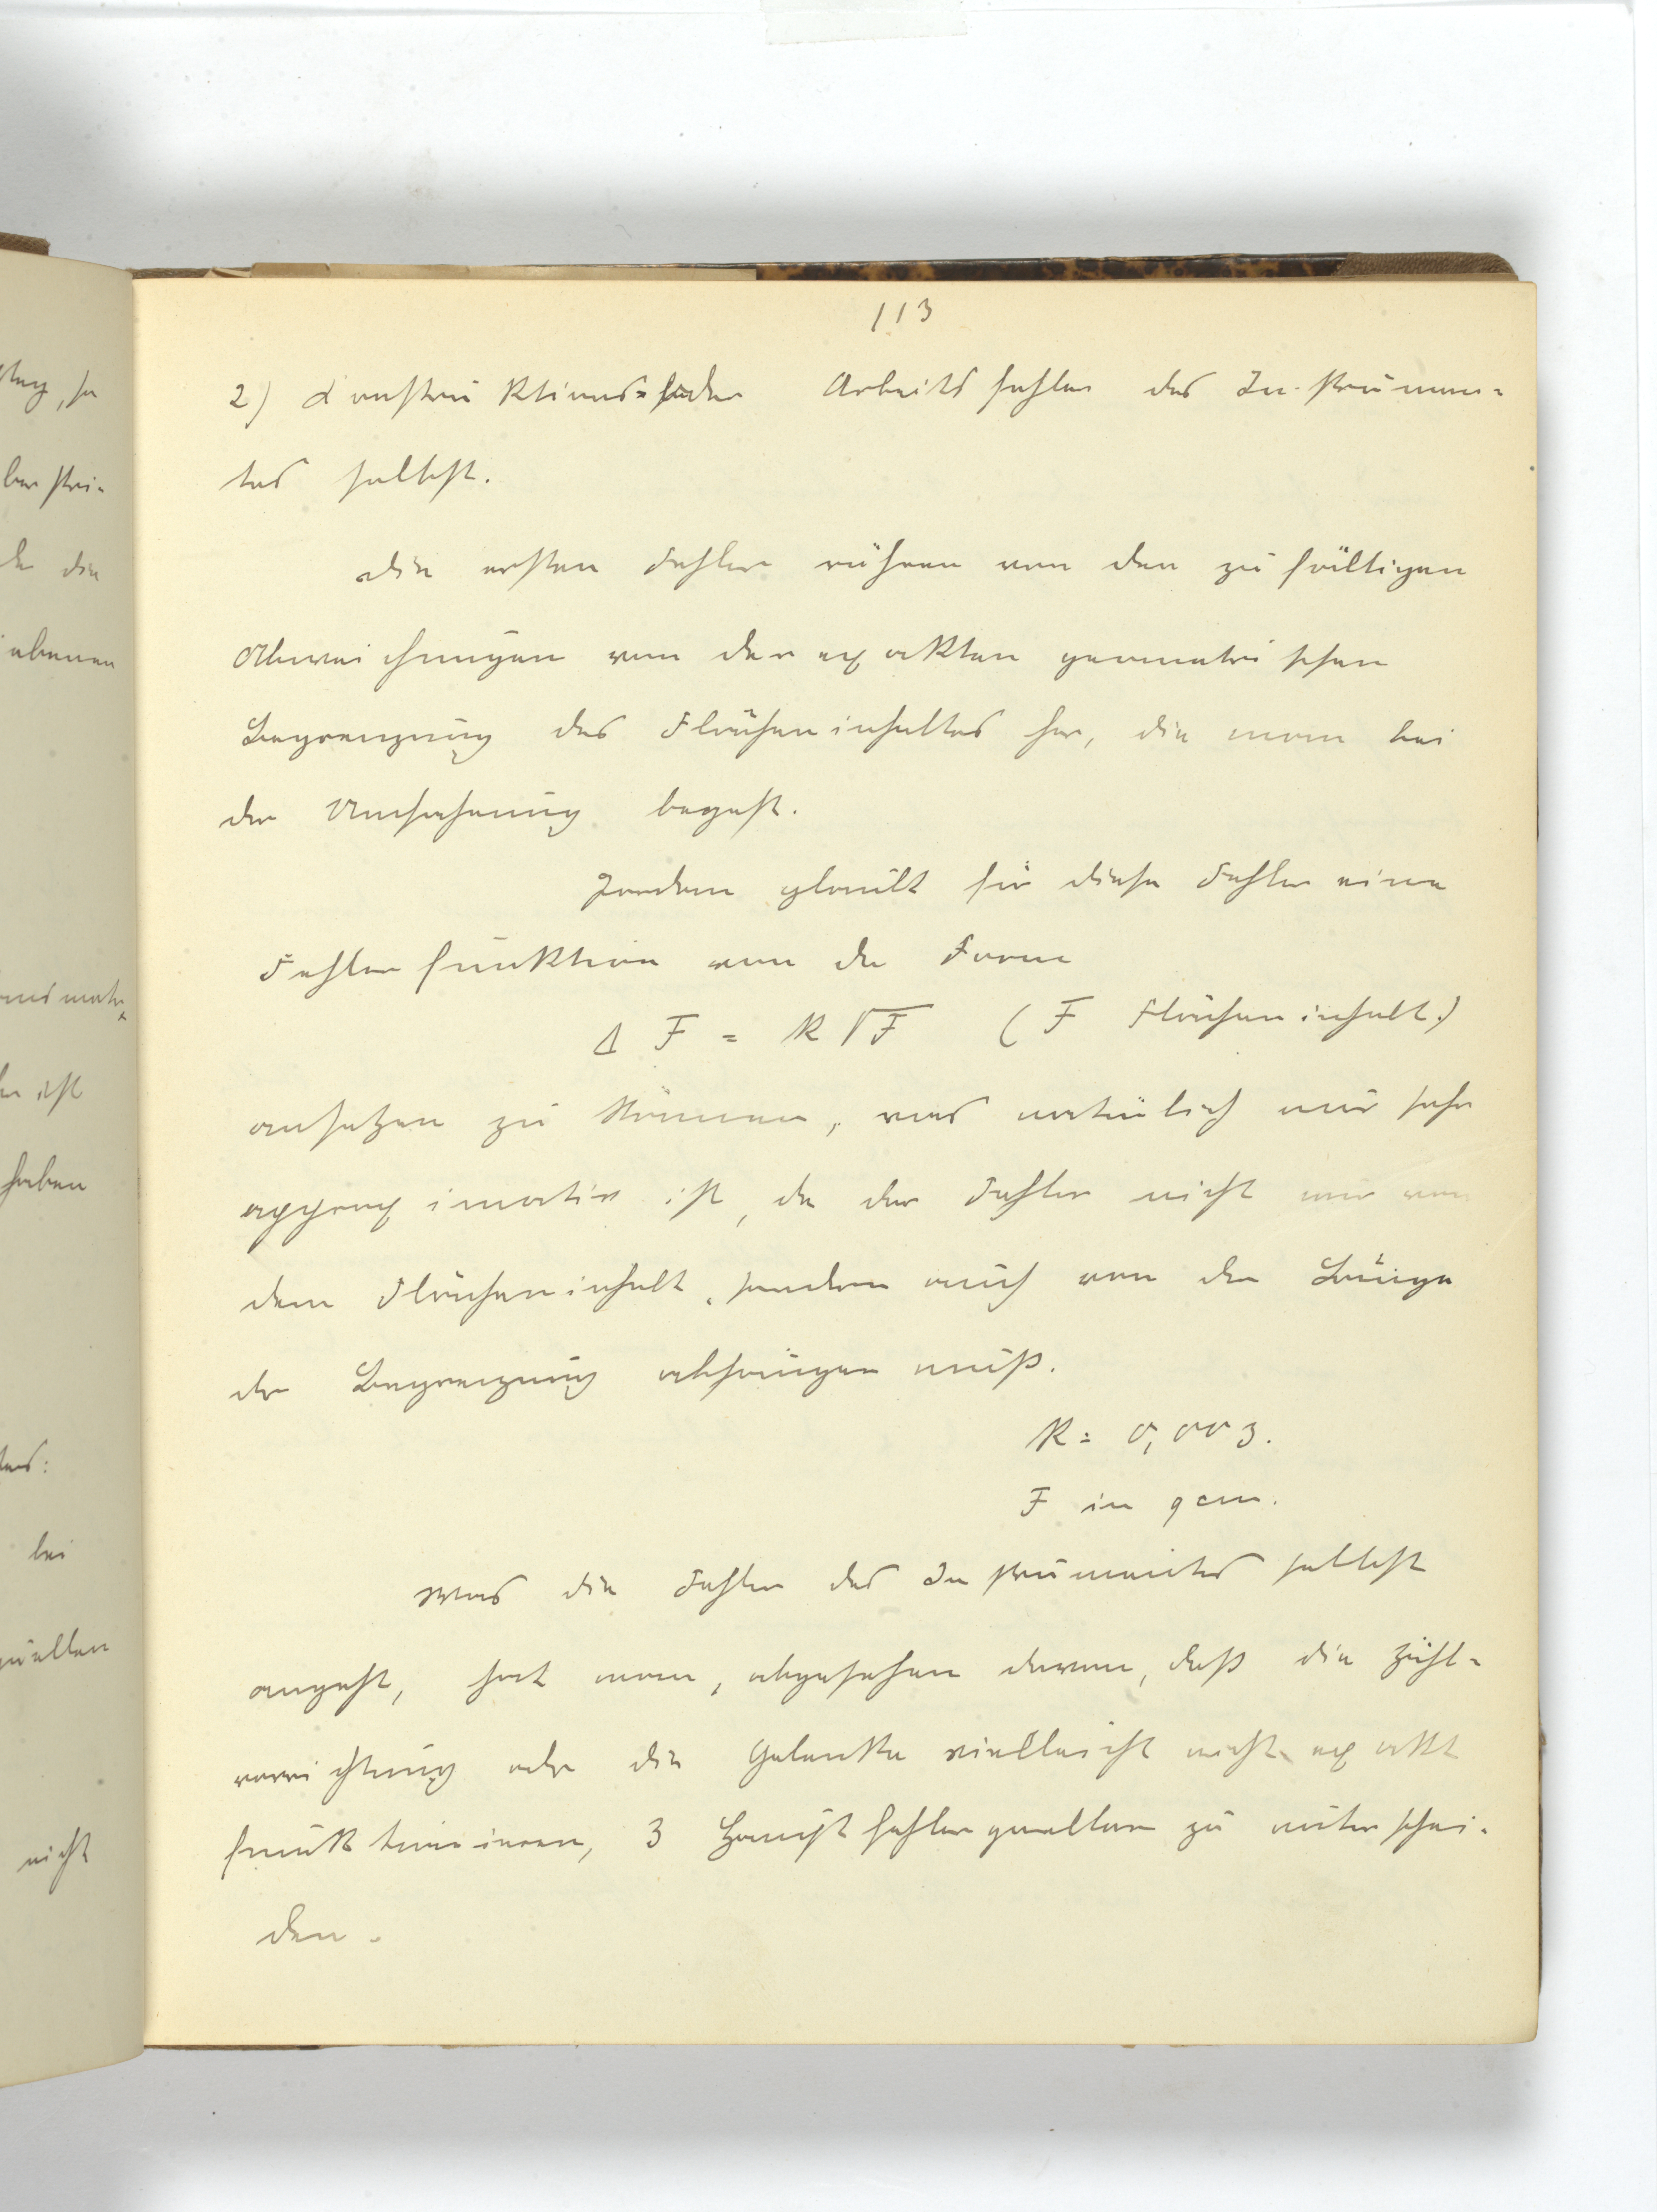 113
2) Konstruktions= oder Arbeitsfehler des Instrumen=
tes selbst.
Die ersten Fehler rühren von den zufälligen
Abweichungen von der exakten geometrischen
Begrenzung des Flächeninhaltes her, die man bei
der Umfahrung begeht.
glaubt für diese Fehler eine
Fehlerfunktion von der Form
Δ F = k √F ( F Flächeninhalt.)
ansetzen zu können, was natürlich nur sehr
approximativ ist, da der Fehler nicht nur von
dem Flächeninhalt, sondern auch von der Länge
der Begrenzung abhängen muß.
k = 0,003.
F in qcm.
Was die Fehler des Instrumentes selbst
angeht, hat man, abgesehen davon, daß die Zähl=
vorrichtung oder die Gelenke vielleicht nicht exakt
funktionieren, 3 Hauptfehlerquellen zu unterschei=
den.
, so
die
ebenen
ist
haben
bei
quellen
nicht